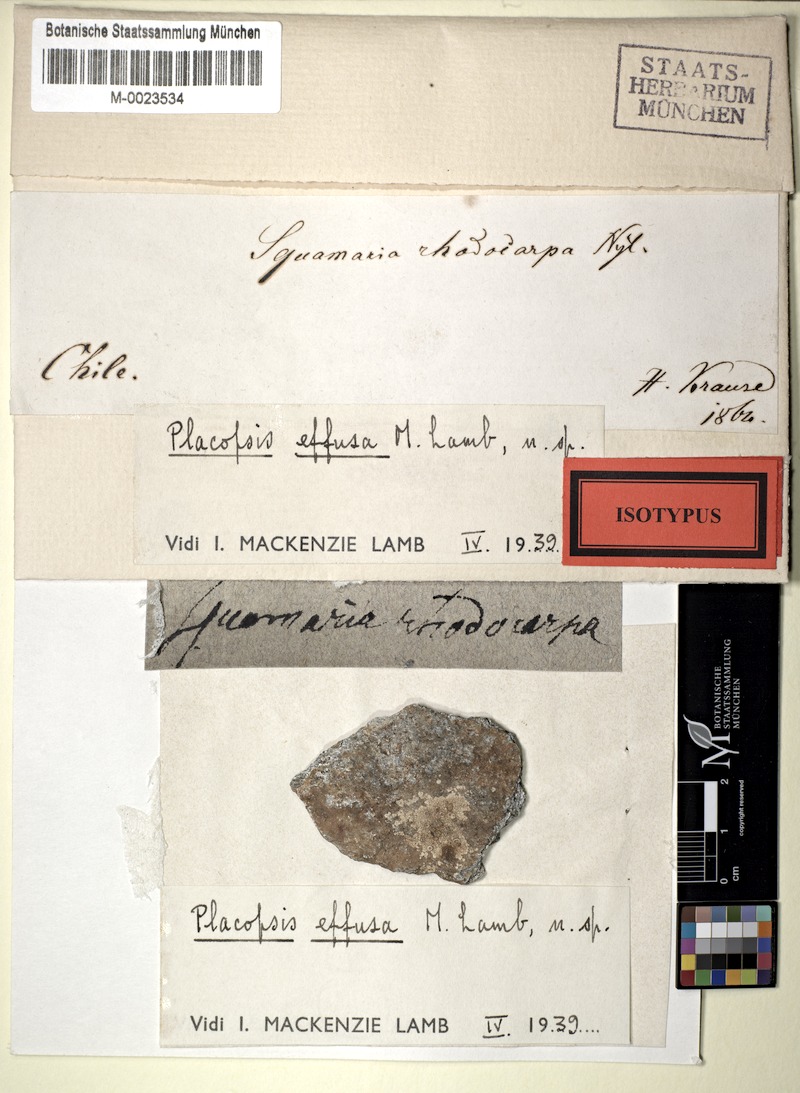 Botanische Staatssammlung München
M-0023534
STAATS-
HERBARIUM
MÜNCHEN
Squamaria rhodocarpa Nyl.
Chile.
H. Krause
Placopsis effusa M. Lamb, n. sp.
Vidi I. MACKENZIE LAMB IV. 1939.
ISOTYPUS
Squamaria rhodocarpa
BOTANISCHE
STAATSSAMMLUNG
MÜNCHEN
copyright reserved
0 1 2
cm
Placopsis effusa M. Lamb, n. sp.
Vidi I. MACKENZIE LAMB IV. 1939....